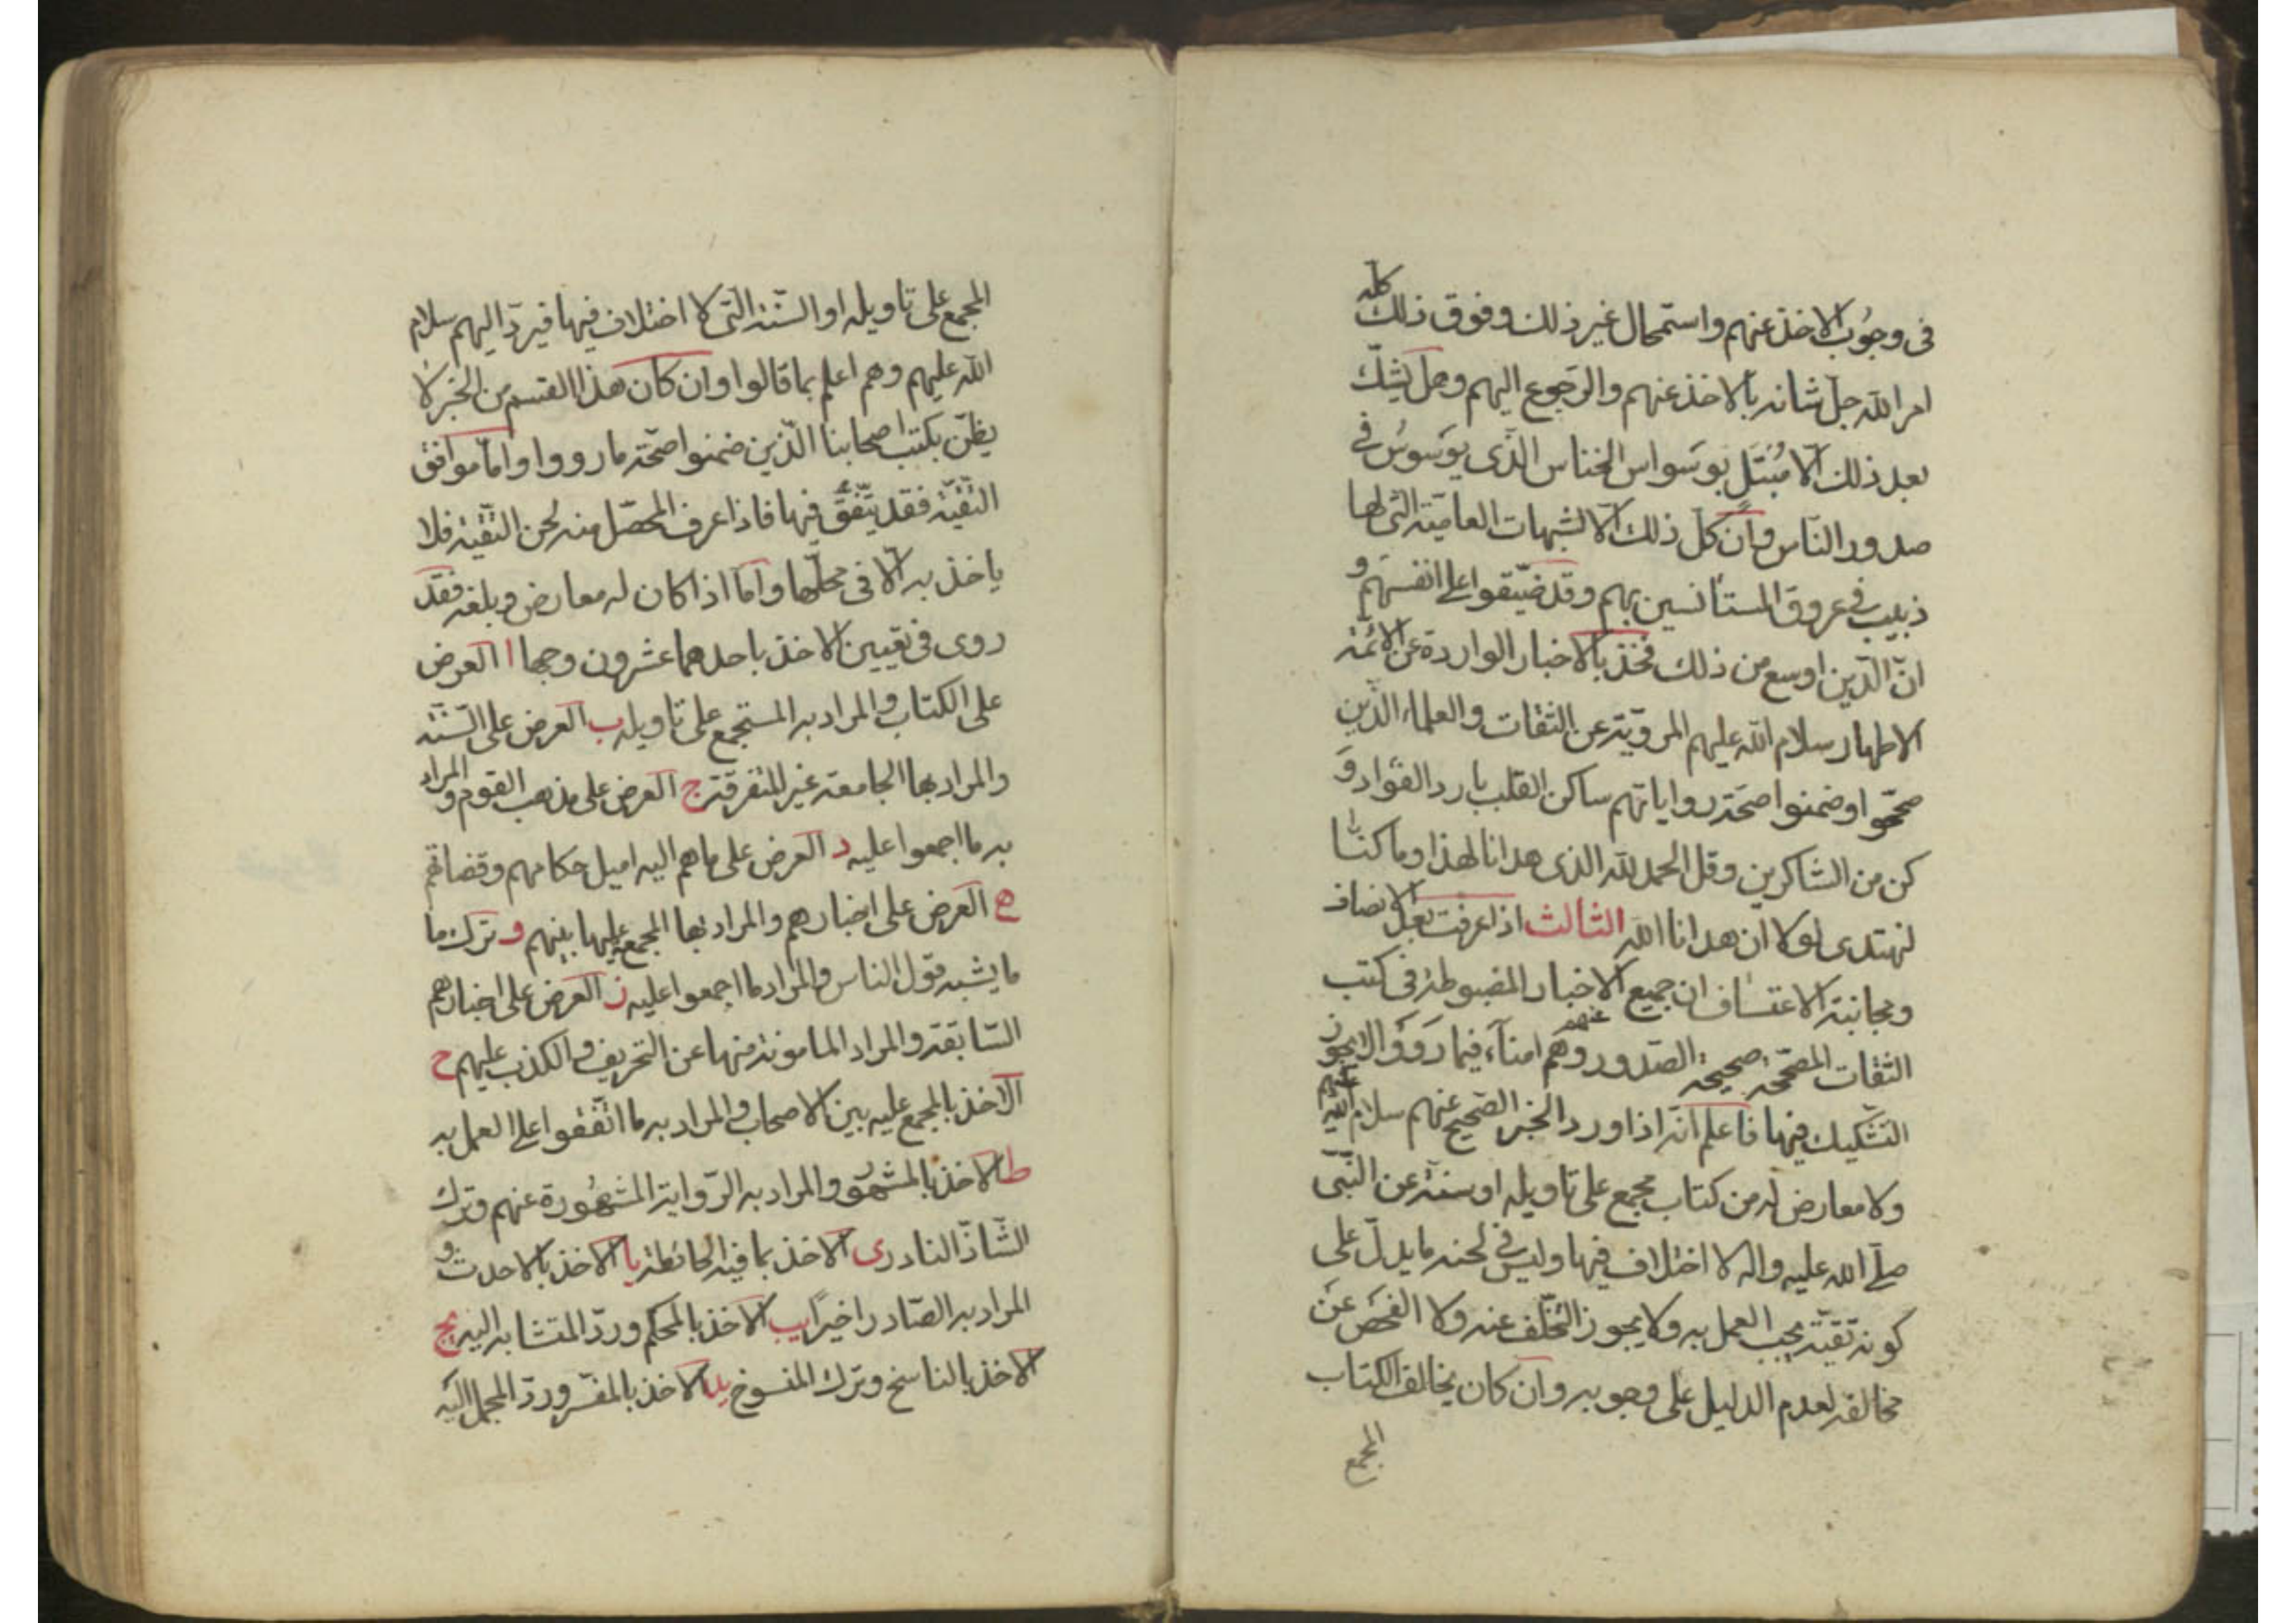 فى وجوب الاخذ عنهم واستمحال غير ذلك وفوق ذلك كله
امر الله جل شانه بالاخذ عنهم والرجوع اليهم وهل يشك
بعد ذلك الا مبتل بوسواس الخناس الذى يوسوس فى
صدور الناس وان كل ذلك الا لشبهات العامية التى لها
ذبيب فى عروق المستانسين بهم وقد ضيقوا على انفسهم و
ان الدين اوسع من ذلك فخذ بالاخبار الواردة عن الائمة
الاطهار سلام الله عليهم المروية عن الثقات والعلماء الذين
صححوا وضمنوا صحة رواياتهم ساكن القلب بارد الفؤاد و
كن من الشاكرين وقل الحمد لله الذى هدانا لهذا وما كنا
لنهتدى لولا ان هدانا الله الثالث اذا عرفت بعين الانصاف
ومجانبة الاعتساف ان جميع الاخبار المضبوطة فى كتب
الثقات المصححة صحيحة الصدور عنهم وهم امناء فيما رووا لا يجوز
التشكيك فيها فاعلم انه اذا ورد الخبر الصحيح عنهم سلام الله عليهم
ولا معارض له من كتاب مجمع على تاويله او سنة عن النبى
صلى الله عليه واله لا اختلاف فيها وليس فى لحنه ما يدل على
كونه تقية يجب العمل به ولا يجوز التخلف عنه ولا الفحص عن
مخالفه لعدم الدليل على وجوبه وان كان يخالف الكتاب
المجمع
المجمع على تاويله او السنة التى لا اختلاف فيها فيرد اليهم سلام
الله عليهم وهم اعلم بما قالوا وان كان هذا القسم من الخبر لا
يظن بكتب اصحابنا الذين ضمنوا صحة ما رووا واما موافق
التقية فقد يتفق فيها فاذا عرف المحصل منه لحن التقية فلا
ياخذ به الا فى محلها واما اذا كان له معارض وبلغه فقد
روى فى تعيين الاخذ باحدهما عشرون وجها ا العرض
على الكتاب والمراد به المستجمع على تاويله ب العرض على السنة
والمراد بها الجامعة غير المتفرقة ج العرض على مذهب القوم والمراد
به ما اجمعوا عليه د العرض على ما هم اليه اميل حكامهم وقضاتهم
ه العرض على اخبارهم والمراد بها المجمع عليها بينهم و ترك ما
ما يشبه قول الناس والمراد ما اجمعوا عليه ز العرض على اخبارهم
السابقة والمراد المامونة منها عن التحريف والكذب عليهم ح
الاخذ بالمجمع عليه بين الاصحاب والمراد به ما اتفقوا على العمل به
ط الاخذ بالمشهور والمراد به الرواية المشهورة عنهم وترك
الشاذ النادر ى الاخذ بما فيه الحائطة يا الاخذ بالاحدث و
المراد به الصادر اخيرا يب الاخذ بالمحكم ورد المتشابه اليه يج
الاخذ بالناسخ وترك المنسوخ يد الاخذ بالمفسر ورد المجمل اليه